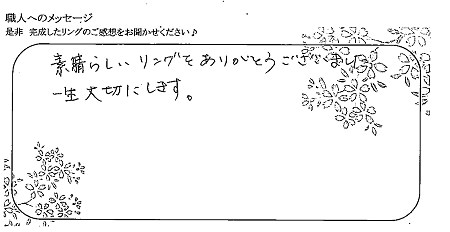 職人へのメッセージ
是非 完成したリングのご感想をお聞かせください♪
素晴らしいリングをありがとうございました
一生大切にします。